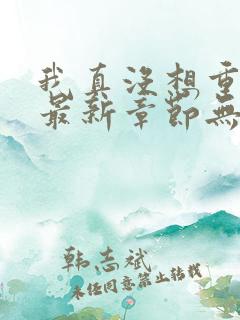 我真没想重
最新章节无
韩志斌
未经同意禁止转载